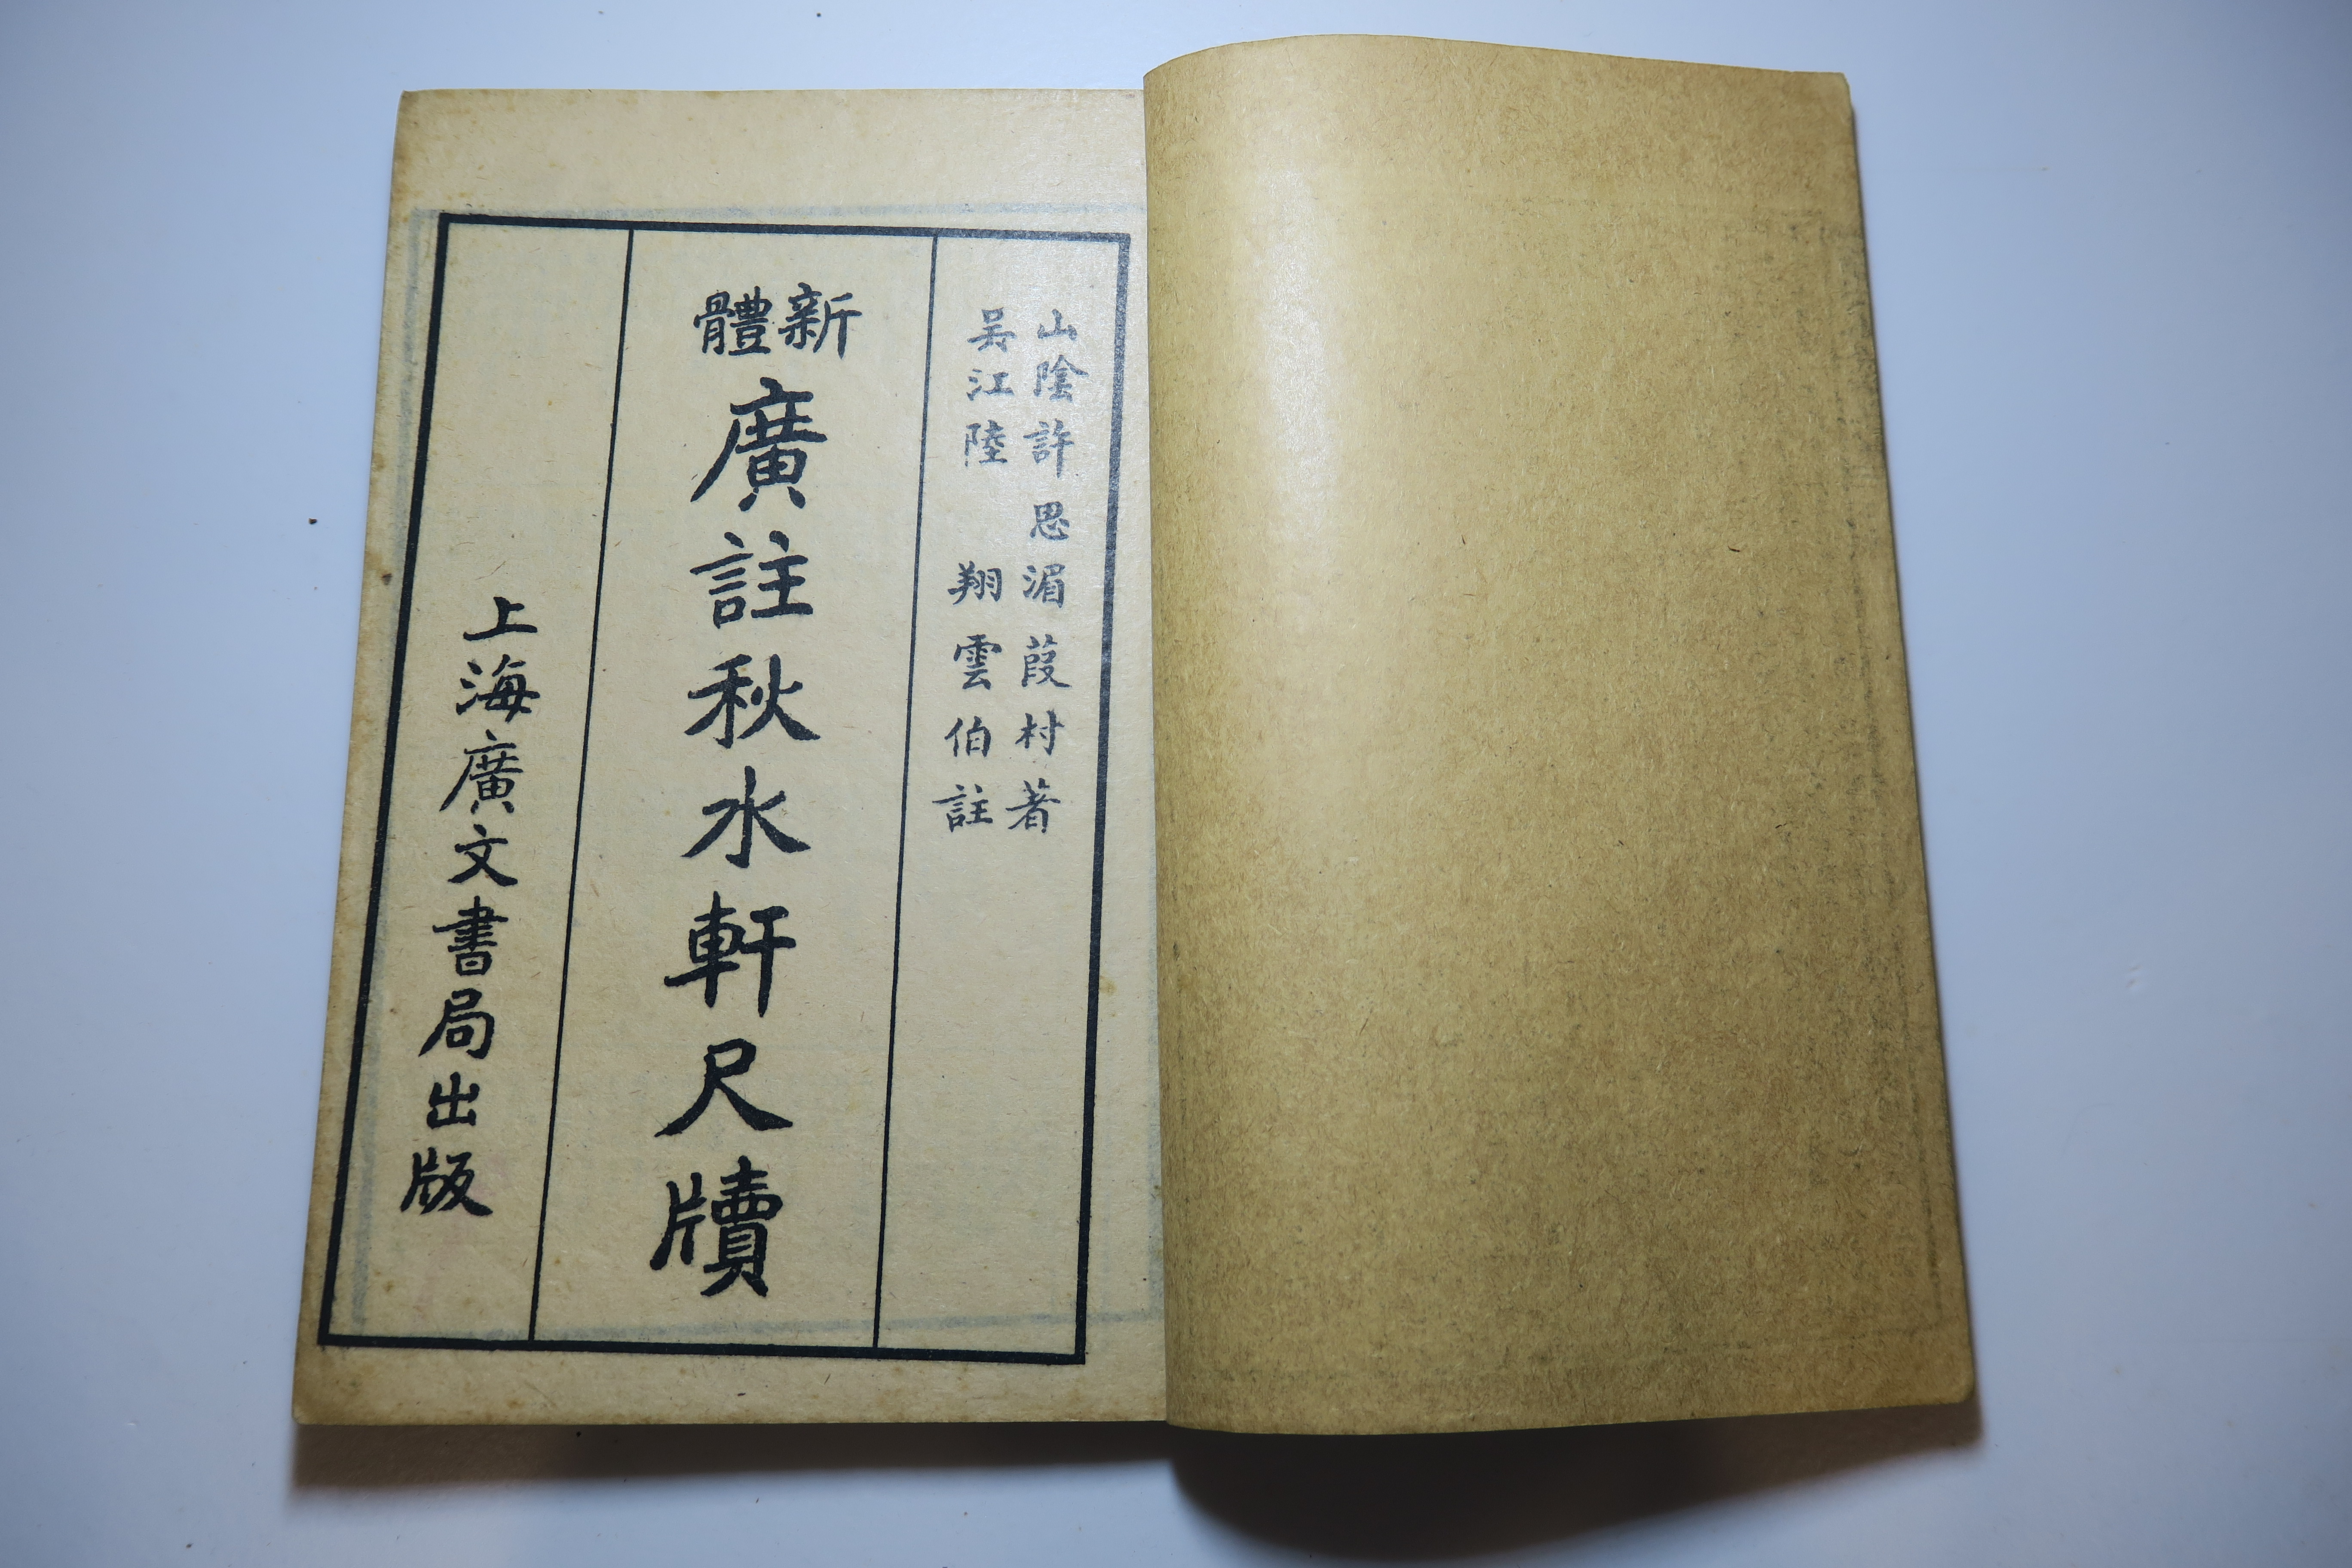 山陰許思湄葭村著
吳江陸翔雲伯註
新體廣註秋水軒尺牘
上海廣文書局出版